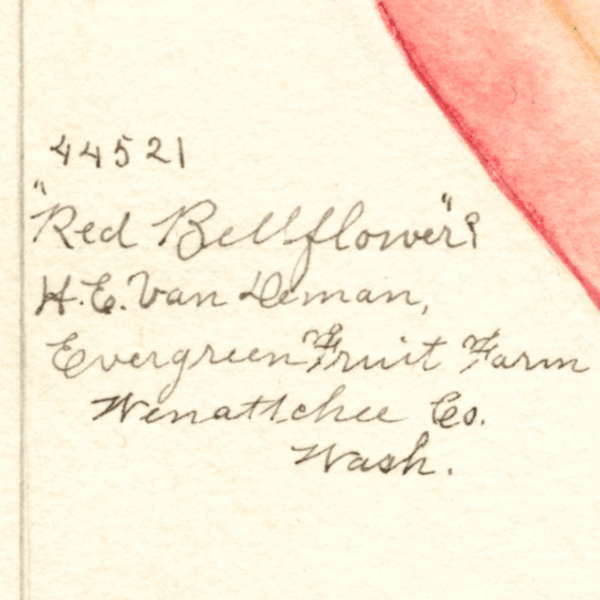 44521
"Red Bellflower"?
H.E. Van Deman,
Evergreen Fruit Farm
Wenattchee Co.
Wash.